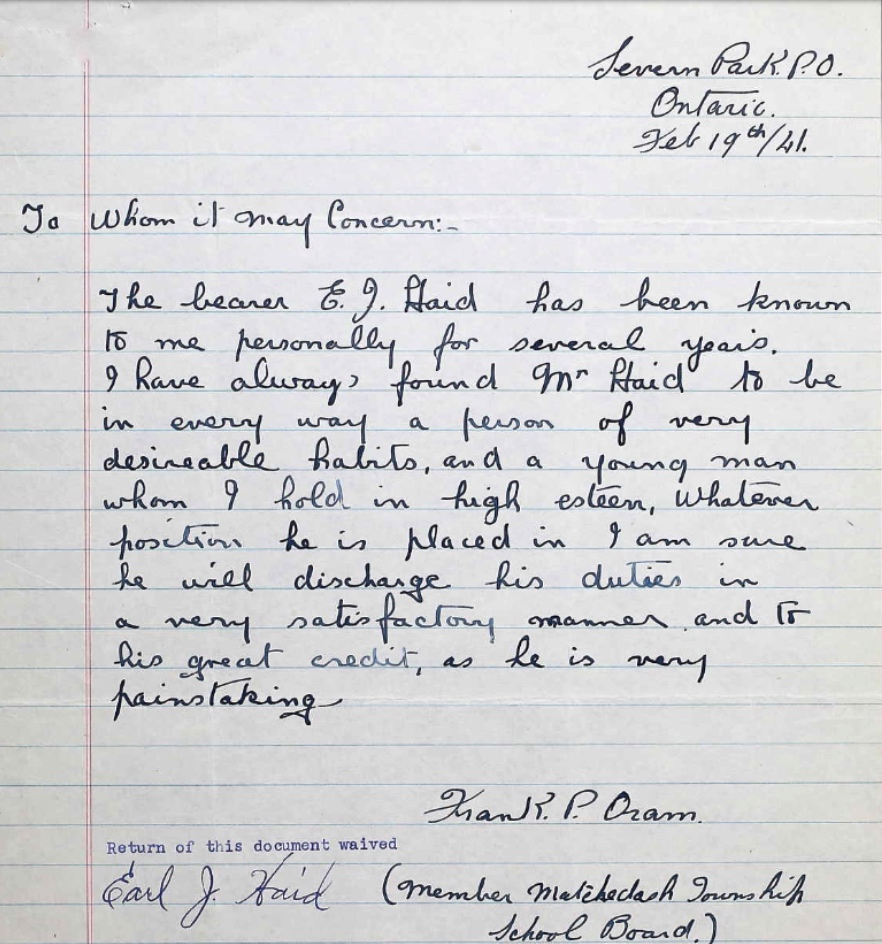 Severn Park. P.O.
Ontario.
Feb 19th/41.
To Whom it may Concern:-
The bearer E. J. Haid has been known
to me personally for several years.
I have always found Mr Haid to be
in every way a person of very
desireable habits, and a young man
whom I hold in high esteen, Whatever
position he is placed in I am sure
he will discharge his duties in
a very satisfactory manner and to
his great credit, as he is very
painstaking
Frank. P. Oram.
Return of this document waived
Earl J. Haid
(Member Matchedash Township
School Board.)